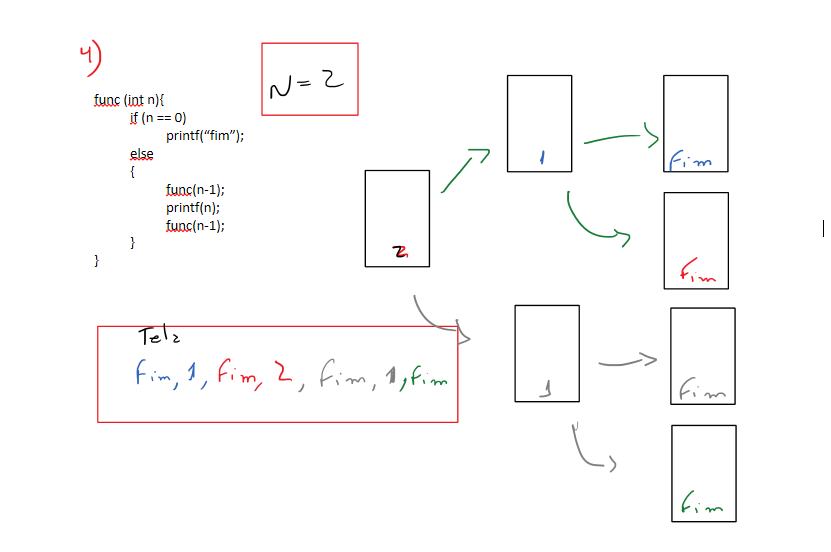 4)
N = 2
func (int n){
if (n == 0)
printf(“fim”);
else
{
func(n-1);
printf(n);
func(n-1);
}
}
2
1
fim
fim
1
fim
fim
Tela
fim, 1, fim, 2, fim, 1, fim